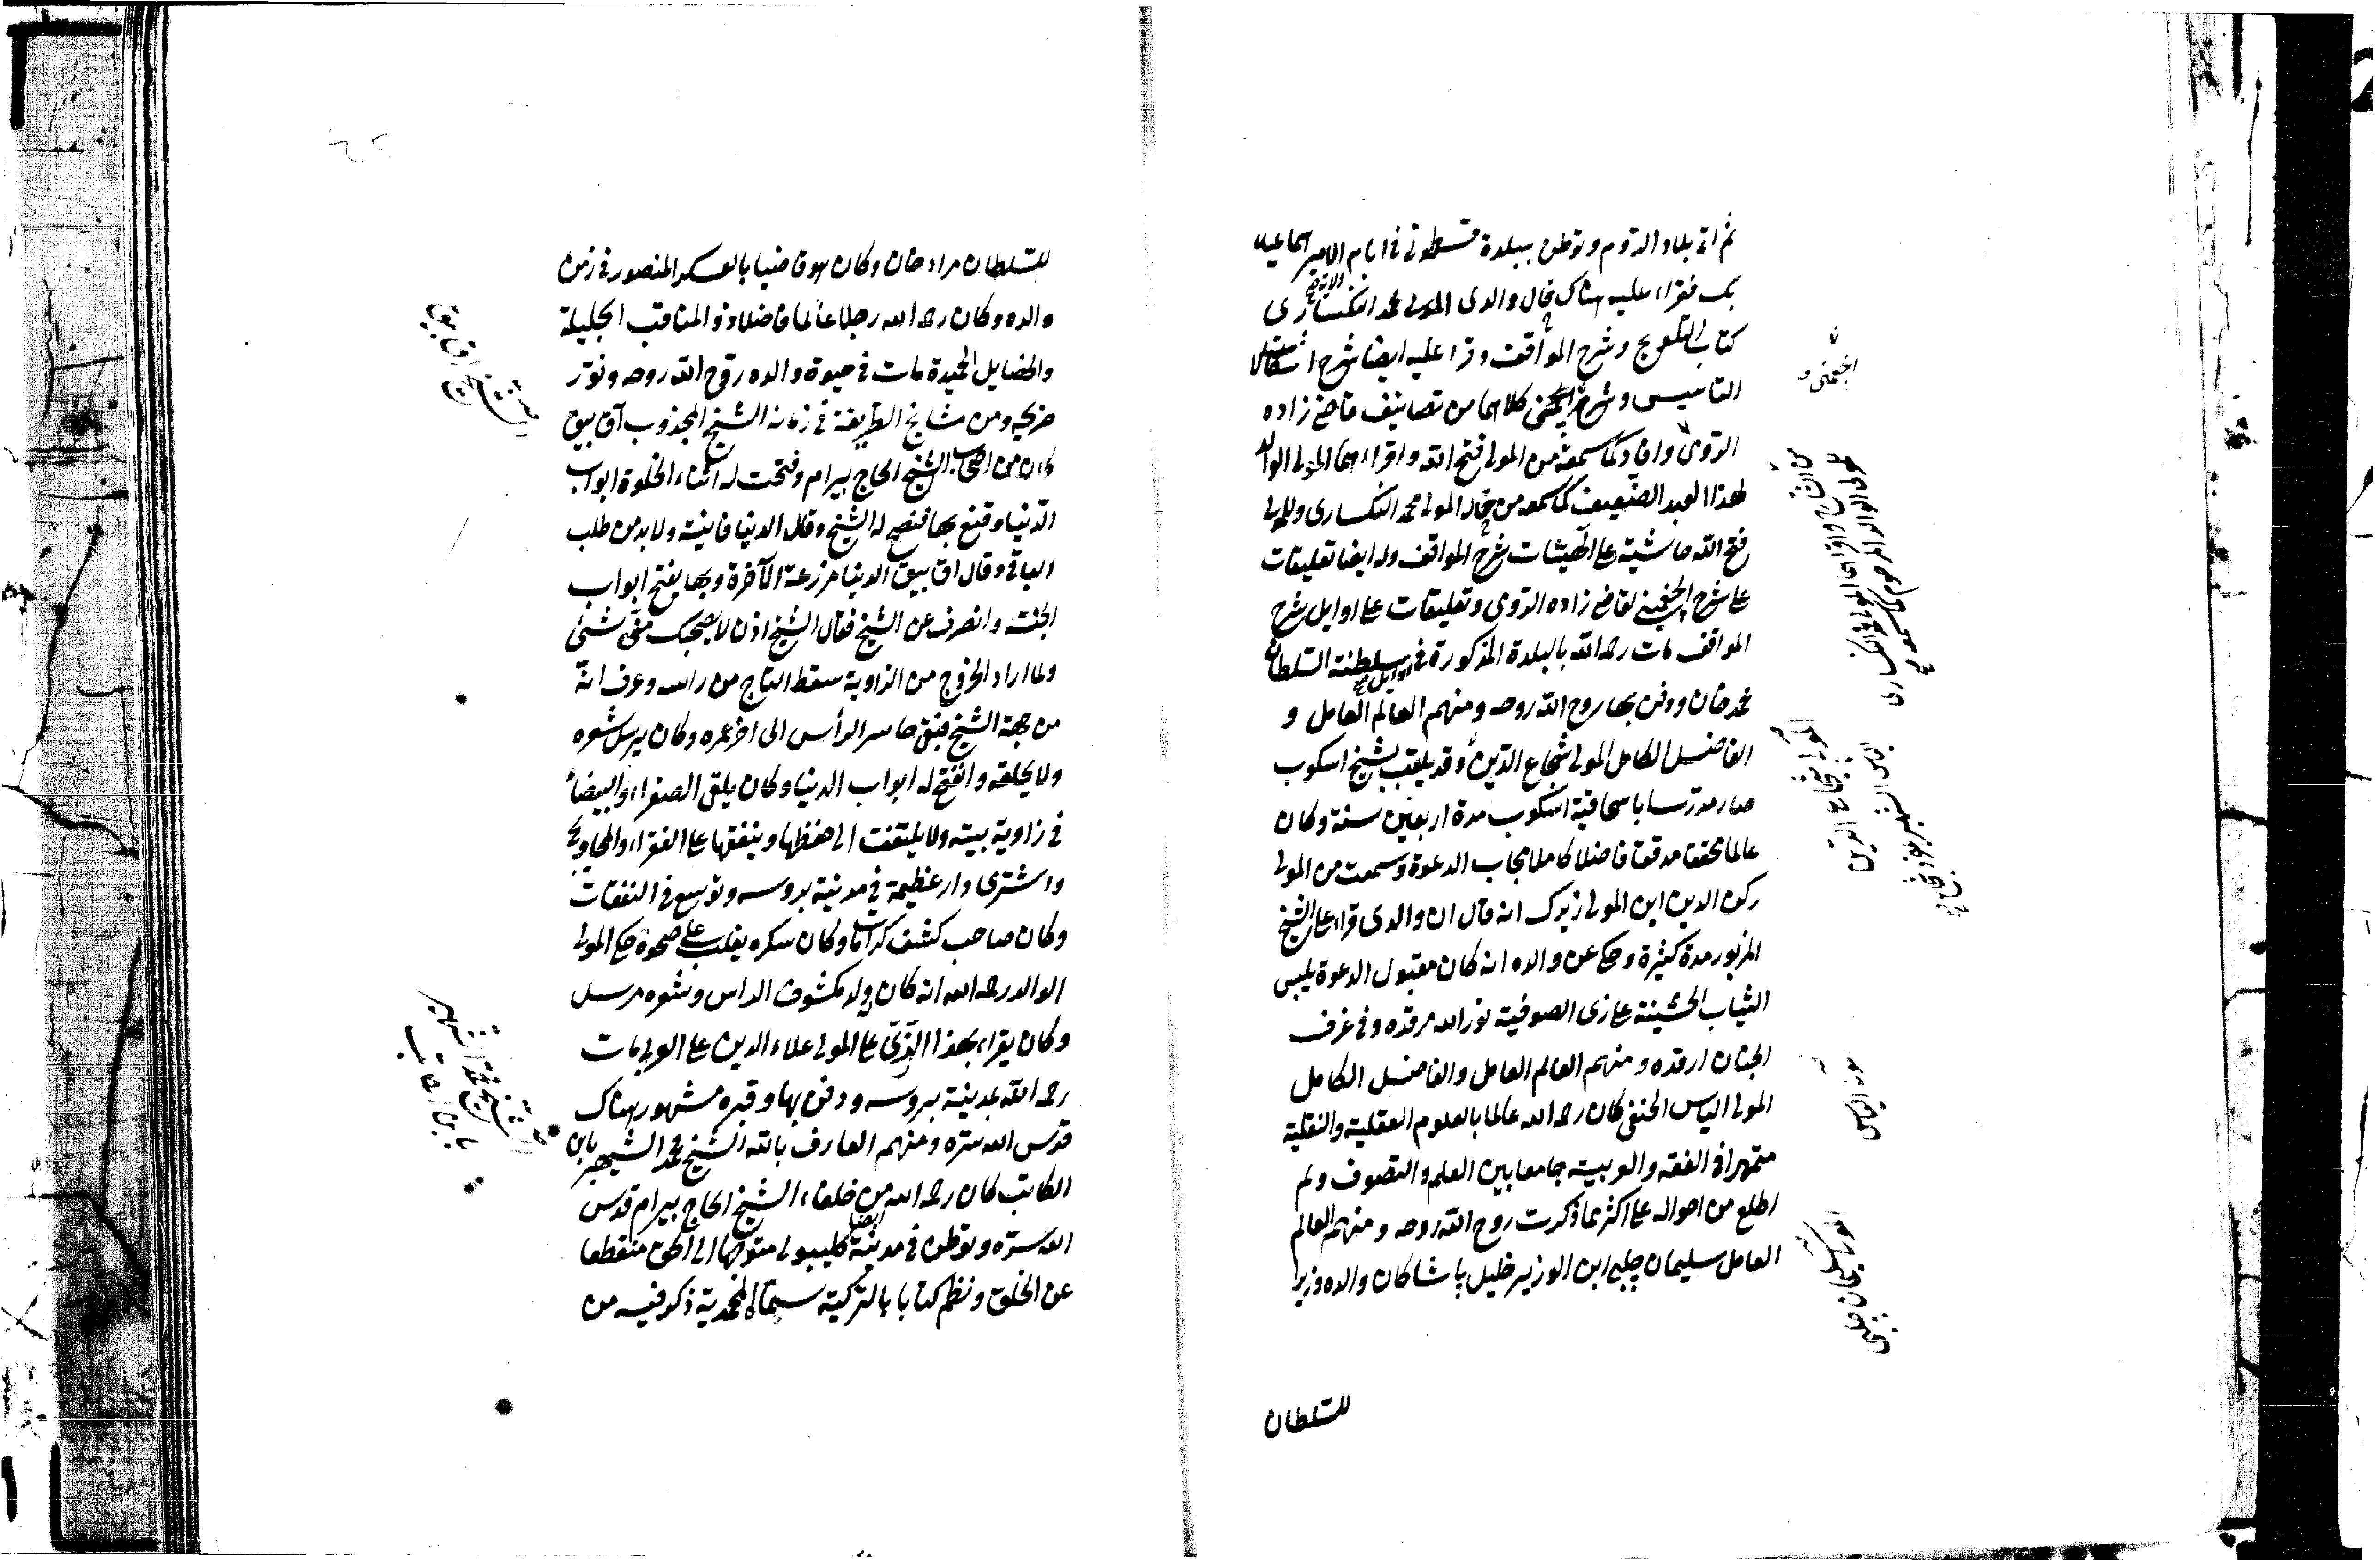 ثم اتى بلاد الروم وتوطن ببلدة قسطموني في ايام الامير اسماعيل
بك فقراء عليه هناك خال والدى المولى محمد النكسارى
كتاب التلويح وشرح المواقف وقراء عليه ايضا شرح اشكال
التاسيس وشرح الجغمنى كلاهما من تصانيف قاضى زاده
الرومى وافاد كما سمعه من المولى فتح الله واقراء هما المولى الوالد
لهذا العبد الضعيف كما سمعه من خاله المولى محمد النكسارى وللمولى
فتح الله حاشية على الهيئات شرح المواقف وله ايضا تعليقات
على شرح الجغمينى لقاضى زاده الرومى وتعليقات على اوايل شرح
المواقف مات رحمه الله بالبلدة المذكورة فى اوايل سلطنة السلطان
محمد خان ودفن بها روح الله روحه ومنهم العالم العامل و
الفاضل الكامل المولى شجاع الدين وقد يلقب بشيخ اسكوب
صار مدرسا باسحاقية اسكوب مدة اربعين سنة وكان
عالما محققا مدققا فاضلا كاملا مجاب الدعوة وسمعت من المولى
ركن الدين ابن المولى زيرك انه قال ان والدى قراء على الشيخ
المزبور مدة كثيرة وحكى عن والده انه كان مقبول الدعوة يلبس
الثياب الخشينة على زى الصوفية نور الله مرقده وفى غرف
الجنان ارقده ومنهم العالم العامل والفاضل الكامل
المولى الياس الحنفى كان رحمه الله عالما بالعلوم العقلية والنقلية
متمهرا فى الفقه والعربية جامعا بين العلم والتصوف ولم
اطلع من احواله على اكثر مما ذكرت روح الله روحه ومنهم العالم
العامل سليمان چلبى ابن الوزير خليل باشا كان والده وزيرا
للسلطان
الجغمنى و
المولى شجاع الدين
مولانا الياس
المولى سليمان چلبى
للسلطان مراد خان وكان هو قاضيا بالعسكر المنصور فى زمن
والده وكان رحمه الله رجلا عالما فاضلا ذو المناقب الجليلة
والخصايل الحميدة مات فى حيوة والده روح الله روحه ونور
ضريحه ومن مشايخ الطريقة فى زمانه الشيخ المجذوب آق بيق
كان من اصحاب الشيخ الحاج بيرام وفتحت له اثناء الخلوة ابواب
الدنيا وقنع بها فنصح له الشيخ وقال الدنيا فانية ولا بد من طلب
الباقى وقال اق بيق الدنيا مزرعة الآخرة وبها يفتح ابواب
الجنة وانصرف عن الشيخ فقال الشيخ اذن لا يصحبك منى شئ
ولما اراد الخروج من الزاوية سقط التاج من راسه وعرف انه
من جهة الشيخ فبقى حاسر الرأس الى اخر عمره وكان يرسل شعره
ولا يحلقه وانفتح له ابواب الدنيا وكان يلقى الصفراء والبيضاء
فى زاوية بيته ولا يلتفت الى حفظها وينفقها على الفقراء والمحاويج
واشترى دار عظيمة فى مدينة بروسه وتوسع فى النفقات
وكان صاحب كشف كرامات وكان سكره يغلب على صحوه حكى المولى
الوالد رحمه الله انه كان ولد مكشوف الراس وشعره مرسل
وكان يقراء بهذا الزى على المولى علاء الدين على العربى مات
رحمه الله بمدينة بروسه ودفن بها وقبره مشهور هناك
قدس الله سره ومنهم العارف بالله الشيخ محمد الشهير بابن
الكاتب كان رحمه الله من خلفاء الشيخ الحاج بيرام قدس
الله سره وتوطن فى مدينة كليبولى ايضا متوجها الى الحق منقطعا
عن الخلق ونظم كتابا بالتركية سماه المحمدية ذكر فيه من
الشيخ اق بيق
الشيخ محمد الشهير
بابن الكاتب